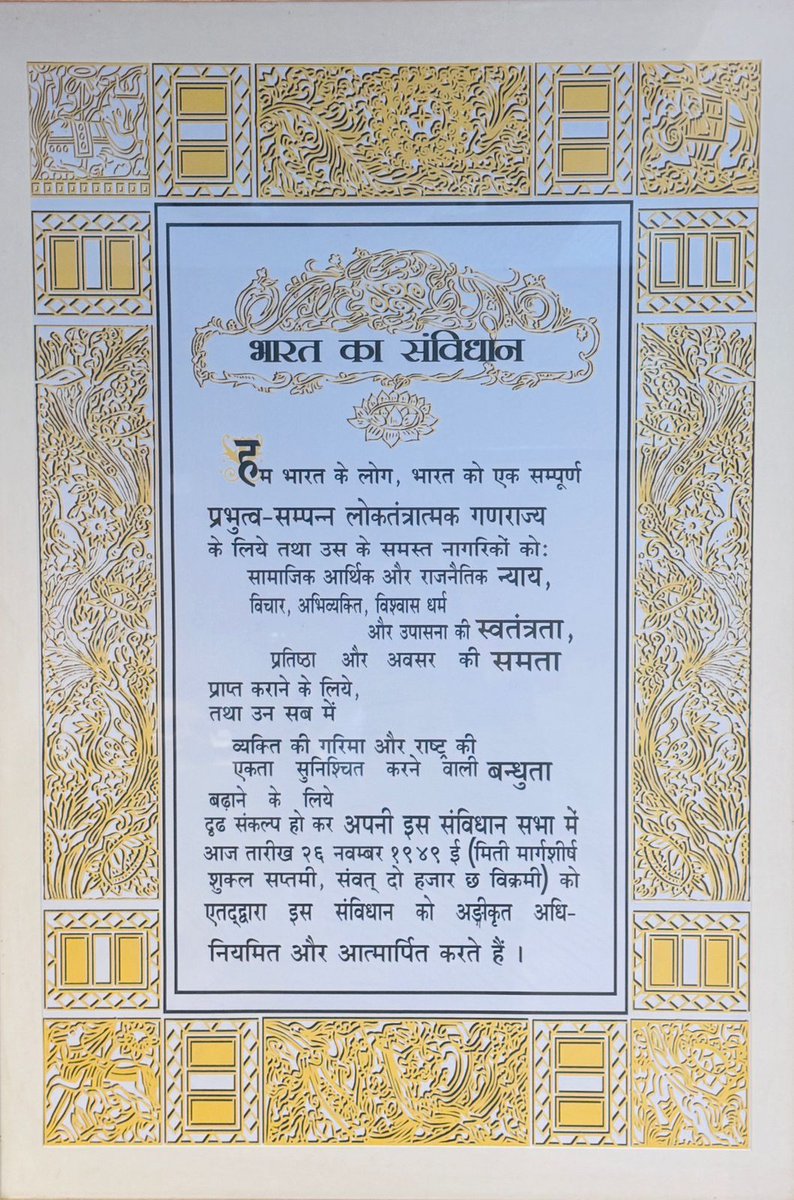 भारत का संविधान
हम भारत के लोग, भारत को एक सम्पूर्ण
प्रभुत्व-सम्पन्न लोकतंत्रात्मक गणराज्य
के लिये तथा उस के समस्त नागरिकों को:
सामाजिक आर्थिक और राजनैतिक न्याय,
विचार, अभिव्यक्ति, विश्वास धर्म
और उपासना की स्वतंत्रता,
प्रतिष्ठा और अवसर की समता
प्राप्त कराने के लिये,
तथा उन सब में
व्यक्ति की गरिमा और राष्ट्र की
एकता सुनिश्चित करने वाली बन्धुता
बढ़ाने के लिये
दृढ संकल्प हो कर अपनी इस संविधान सभा में
आज तारीख २६ नवम्बर १९४९ ई (मिती मार्गशीर्ष
शुक्ल सप्तमी, संवत् दो हजार छ विक्रमी) को
एतद्द्वारा इस संविधान को अङ्गीकृत अधि-
नियमित और आत्मार्पित करते हैं ।